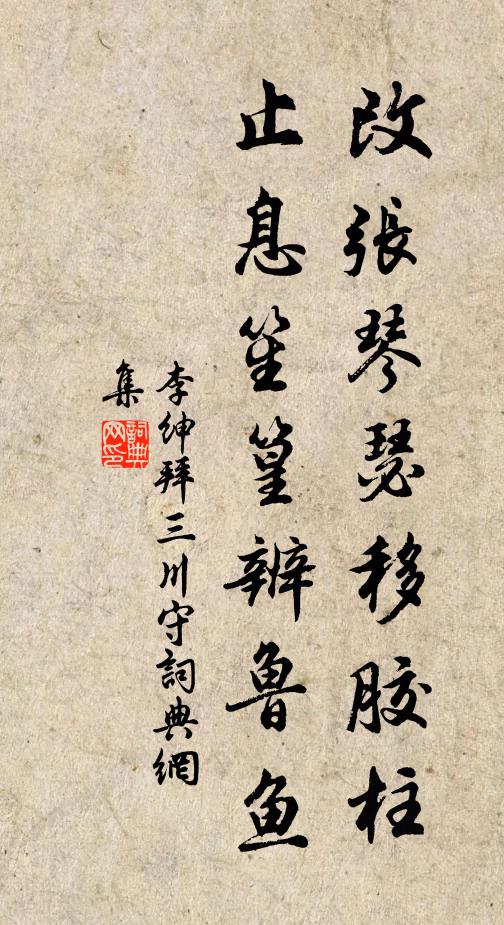 改張琴瑟移膠柱
止息笙篁辨魯鱼
李绅拜三川守詞典網
集
詞典
网印